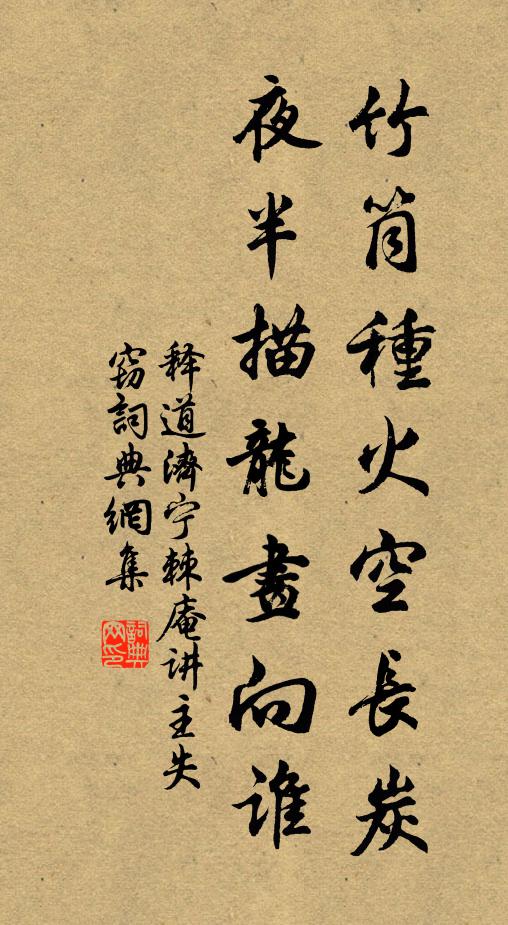 竹筒種火空長炭
夜半描龍畫向誰
释道濟宁棘庵讲主失
窃詞典網集
詞典網印